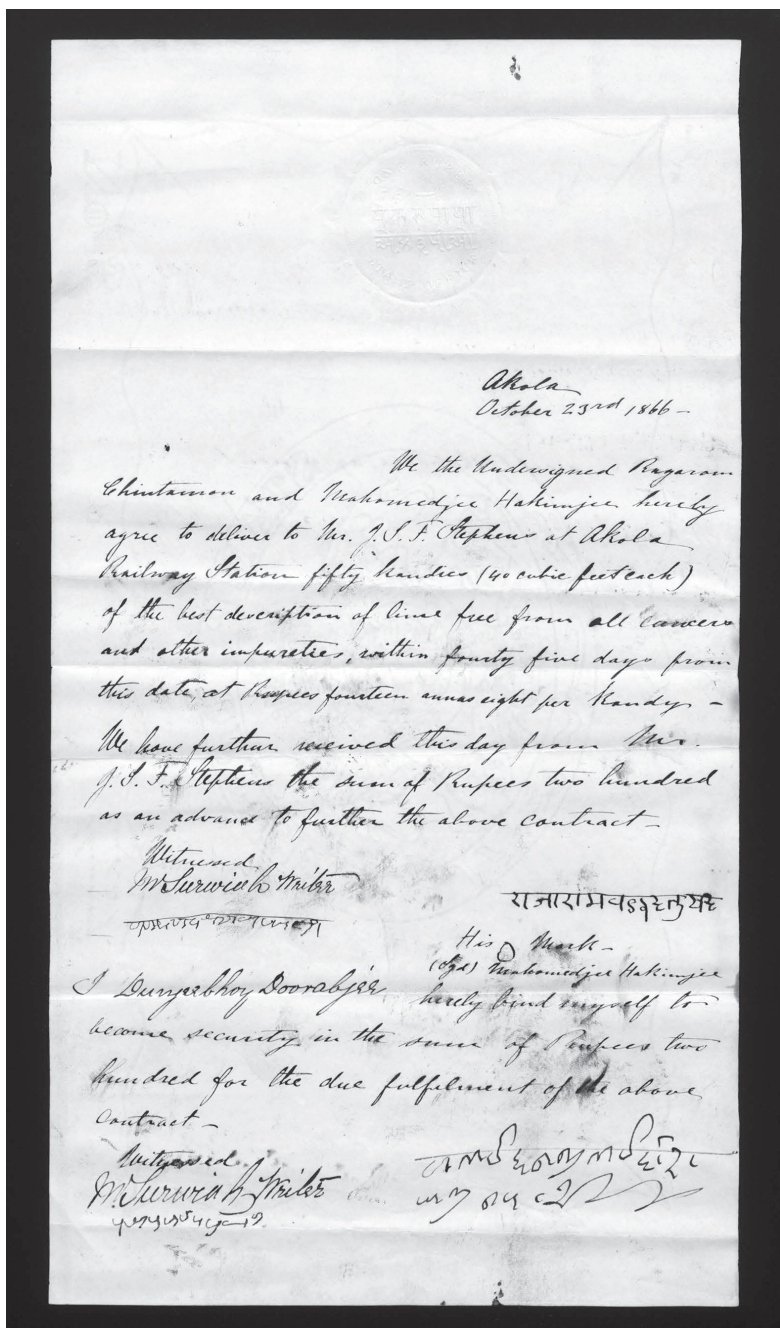 Akola
October 23rd 1866 -
We the Undersigned Ragaram
Chintamon and Mahomedjee Hakimjee hereby
agree to deliver to Mr. J. S. F. Stephens at Akola
Railway Station fifty Kandies (40 cubic feet each)
of the best description of lime free from all
and other impureties, within fourty five days from
this date, at Rupees fourteen annas eight per Kandy -
We have further received this day from Mr.
J. S. F. Stephens the sum of Rupees two hundred
as an advance to further the above contract -
Witnessed
Writer
राजाराम
His Mark -
(Sgd) Mahomedjee Hakimjee
I Doorabjee hereby bind myself to
become security in the sum of Rupees two
hundred for the due fulfilment of the above
contract -
Witnessed
Writer